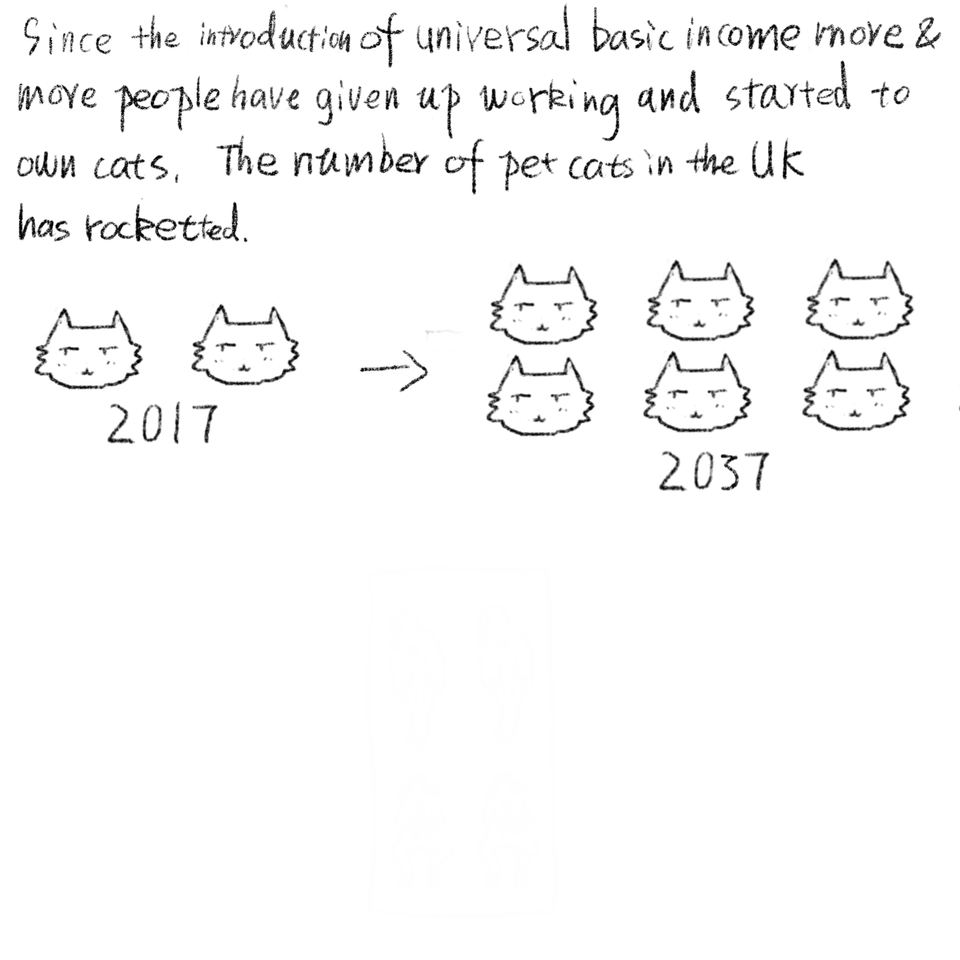 Since the introduction of universal basic income more &
more people have given up working and started to
own cats. The number of pet cats in the UK
has rocketted.
2017
2037